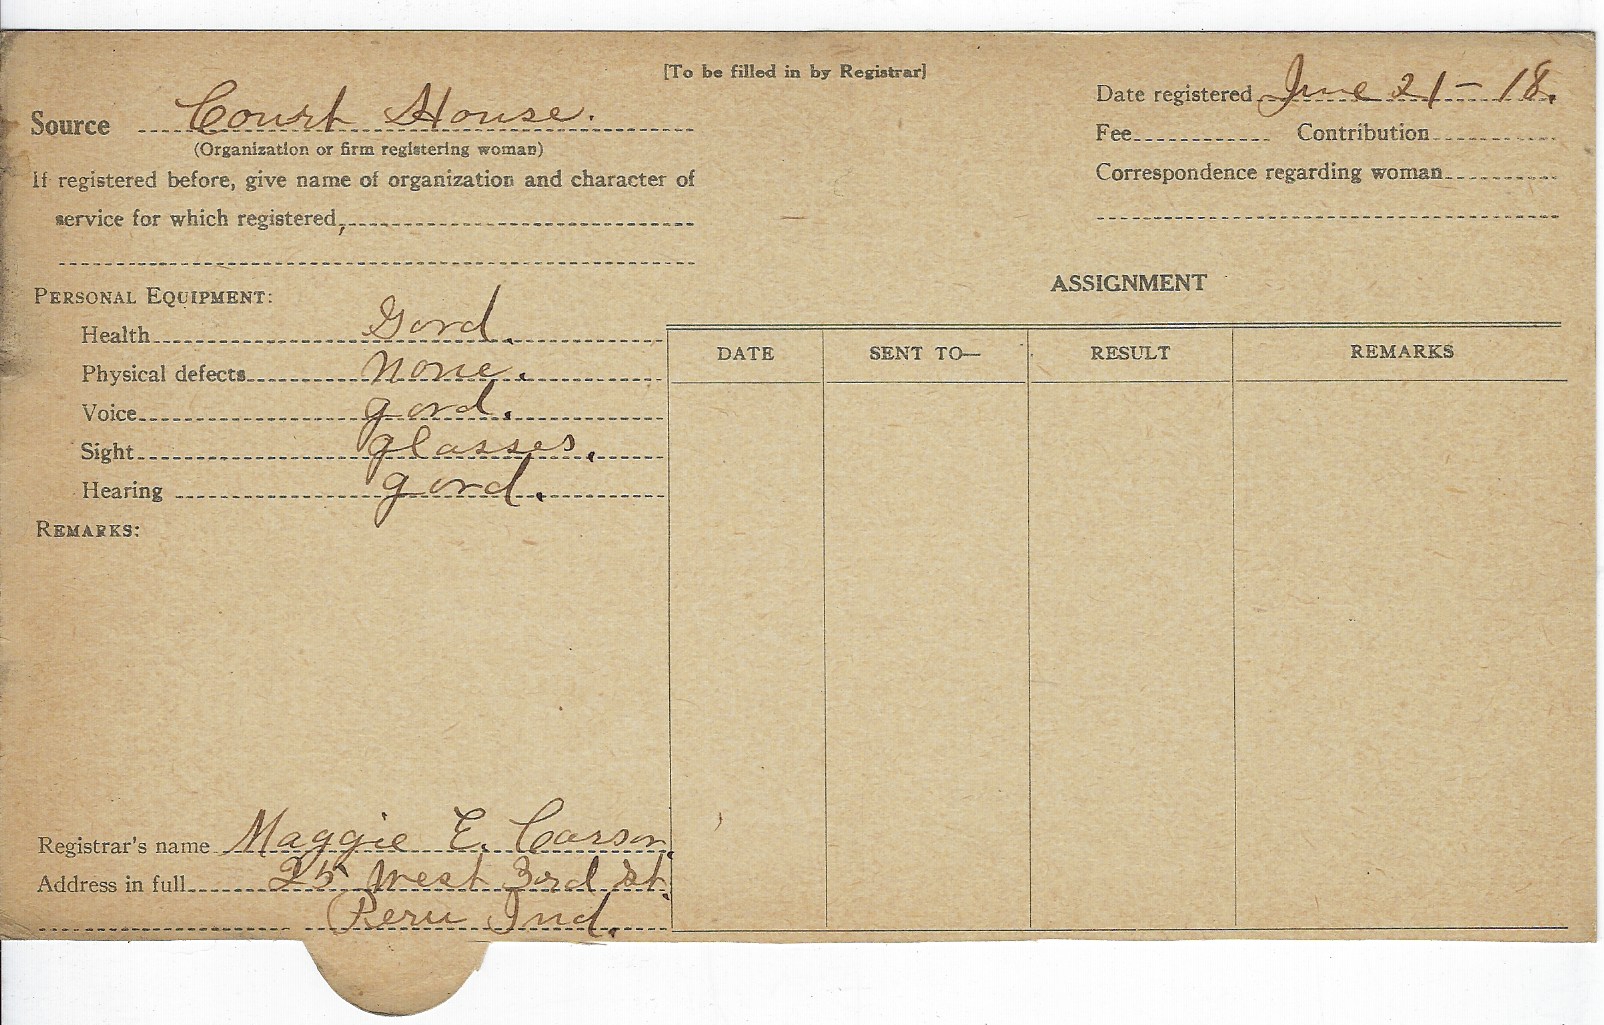 [To be filled in by Registrar]
Source Court House.
(Organization or firm registering woman)
If registered before, give name of organization and character of
service for which registered,
Date registered June 21-18.
Fee Contribution
Correspondence regarding woman
PERSONAL EQUIPMENT:
Health Good.
Physical defects none.
Voice good.
Sight glasses.
Hearing good.
REMARKS:
ASSIGNMENT
DATE SENT TO— RESULT REMARKS
Registrar's name Maggie E. Carson.
Address in full 25 West 3rd St.
Peru Ind.